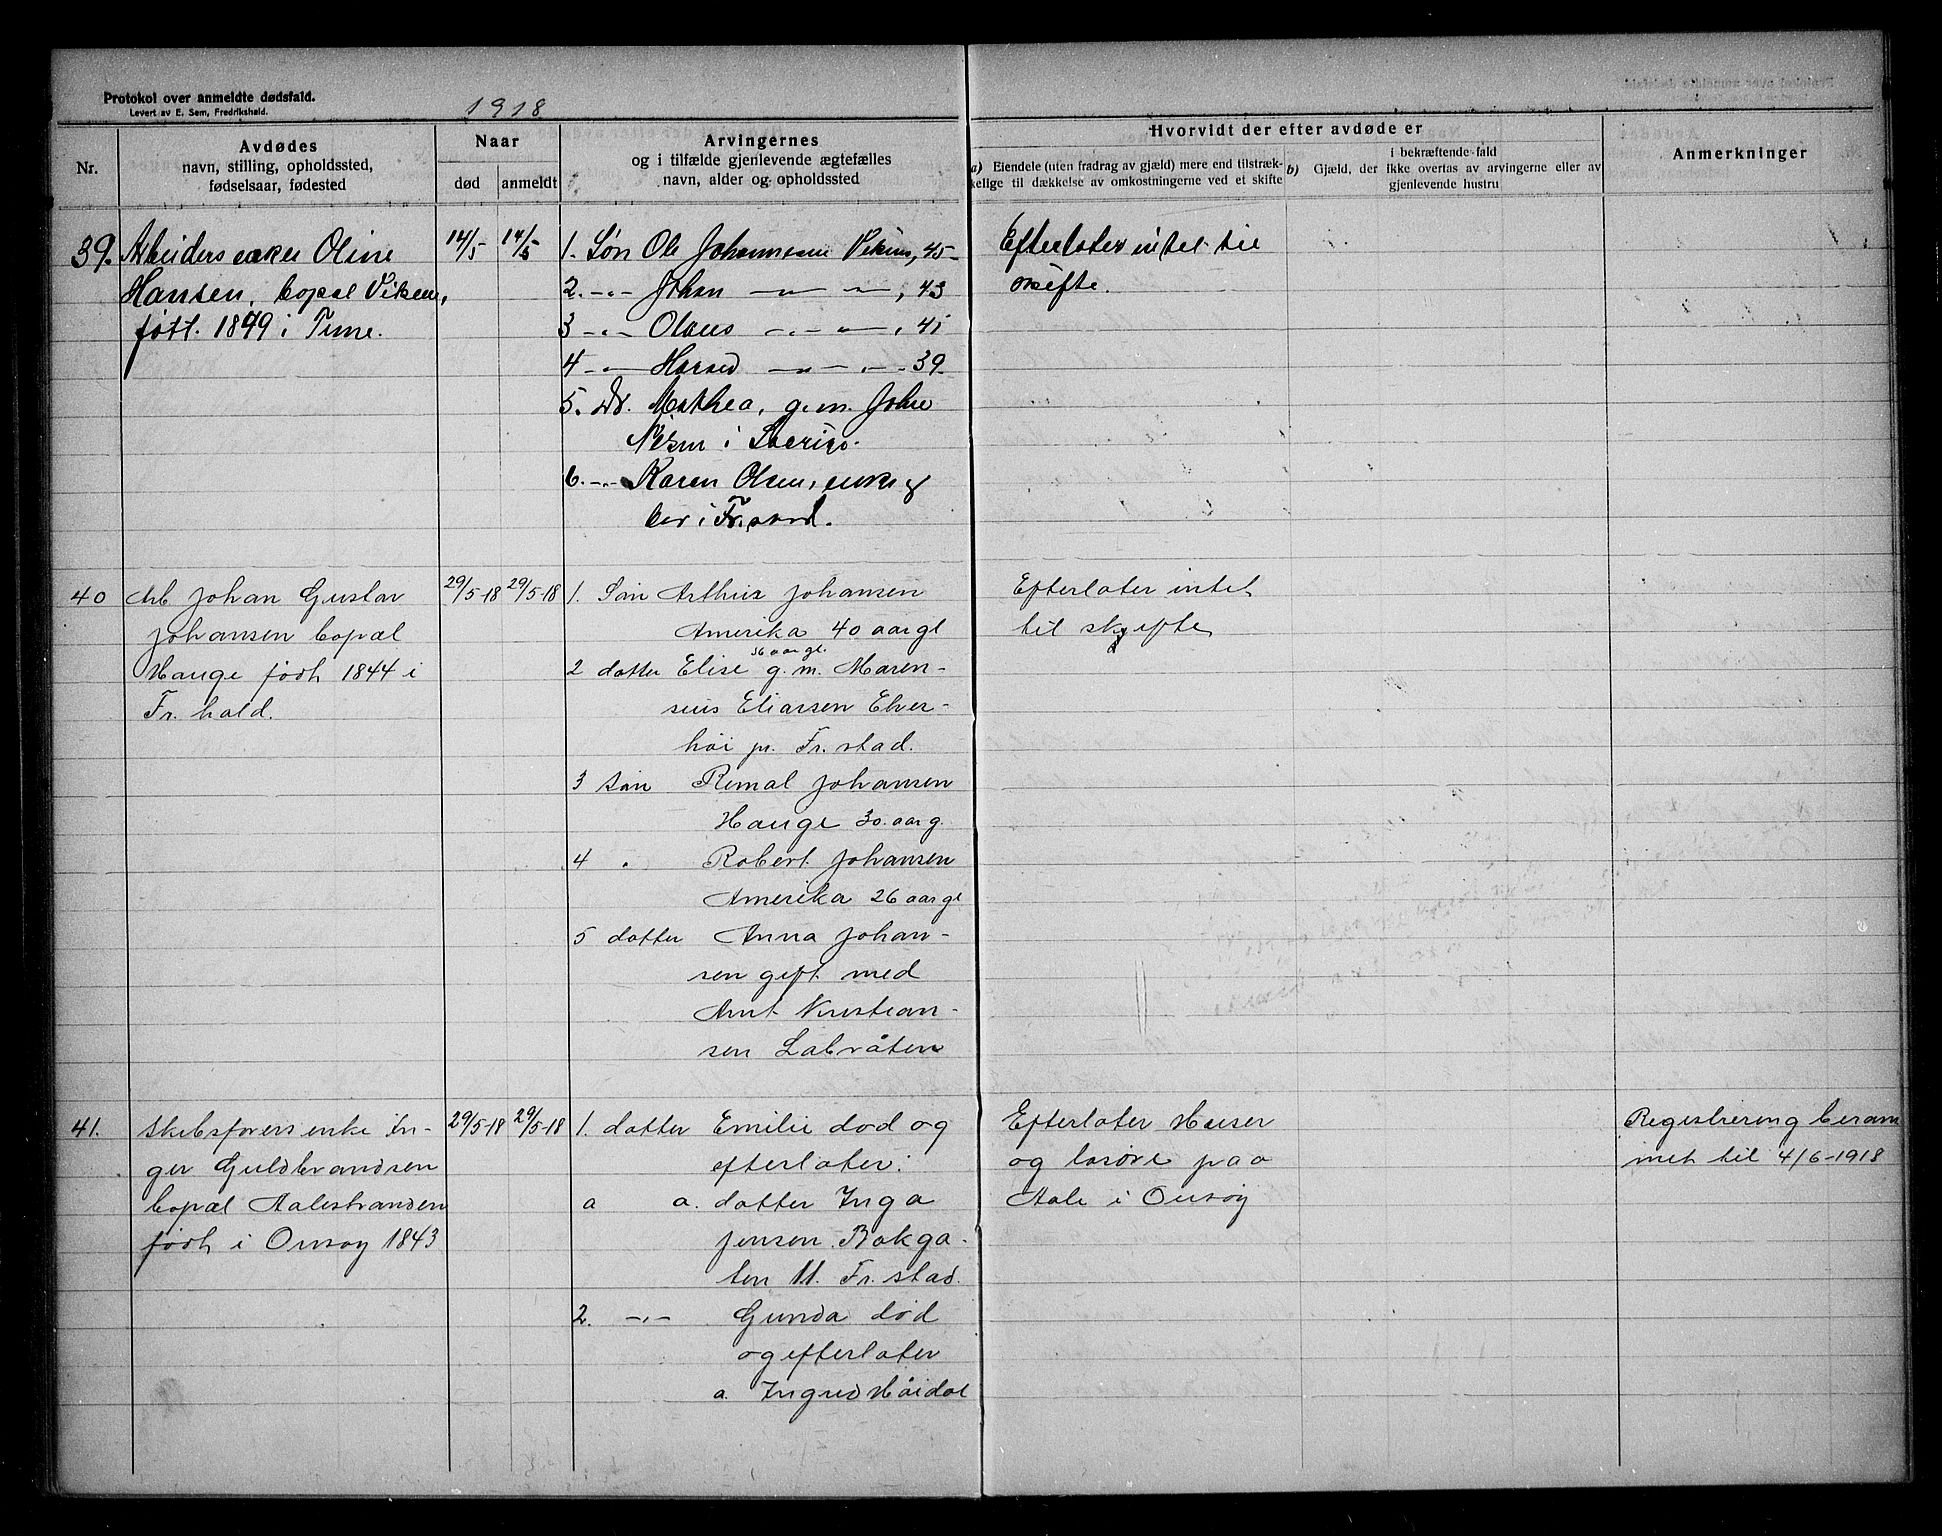 Protokol over anmeldte dødsfald.
Levert av E. Sem, Fredrikshald.
1918
Nr.
Avdødes
navn, stilling, opholdssted,
fødselsaar, fødested
Naar
død
anmeldt
Arvingernes
og i tilfælde gjenlevende ægtefælles
navn, alder og opholdssted
Hvorvidt der efter avdøde er
a) Eiendele (uten fradrag av gjæld) mere end tilstræk-
kelige til dækkelse av omkostningerne ved et skifte
b) Gjæld, der i bekræftende fald
ikke overtas av arvingerne eller av
gjenlevende hustru
Anmerkninger
39. Arbeiders enke Oline
Hansen, bopæl Viken,
født 1849 i Tune.
14/5 14/5
1. Søn Ole Johannesen Viken, 45
2. -"- Johan -"- -"-, 43
3 -"- Olaus -"- -"-, 41
4 -"- Harald -"- -"- 39
5. Dt. Mathea, g.m. John
i Sverige.
6. -"- Karen Olsen, enke
bor i Fr.stad.
Efterlater intet til
skifte.
40 Arb Johan Gustav
Johansen bopæl
Hauge født 1844 i
Fr. hald.
29/5-18 29/5-18
1. Søn Arthur Johansen
Amerika 40 aar gl
36 aar gl.
2 datter Elise g. m. Maren-
sius Eliassen Elver-
høi pr. Fr. stad.
3 søn Johansen
Hauge 30 aar g.
4 " Robert Johansen
Amerika 26 aar gl
5 datter Anna Johan-
sen gift med
Arnt Kristian-
sen Labråten
Efterlater intet
til skifte
41. Skibsførers enke In-
ger Guldbrandsen
bopæl Aalestranden
født i Onsøy 1843
29/5-18 29/5-18
1. datter Emilie død og
efterlater:
a a. datter Inga
Jensen Bakga-
ten 11. Fr. stad.
2. -"- Gunda død
og efterlater
a. Ingrid Høidal
Efterlater Huser
og løsøre paa
Aale i Onsøy
Registrering beram
met til 4/6-1918